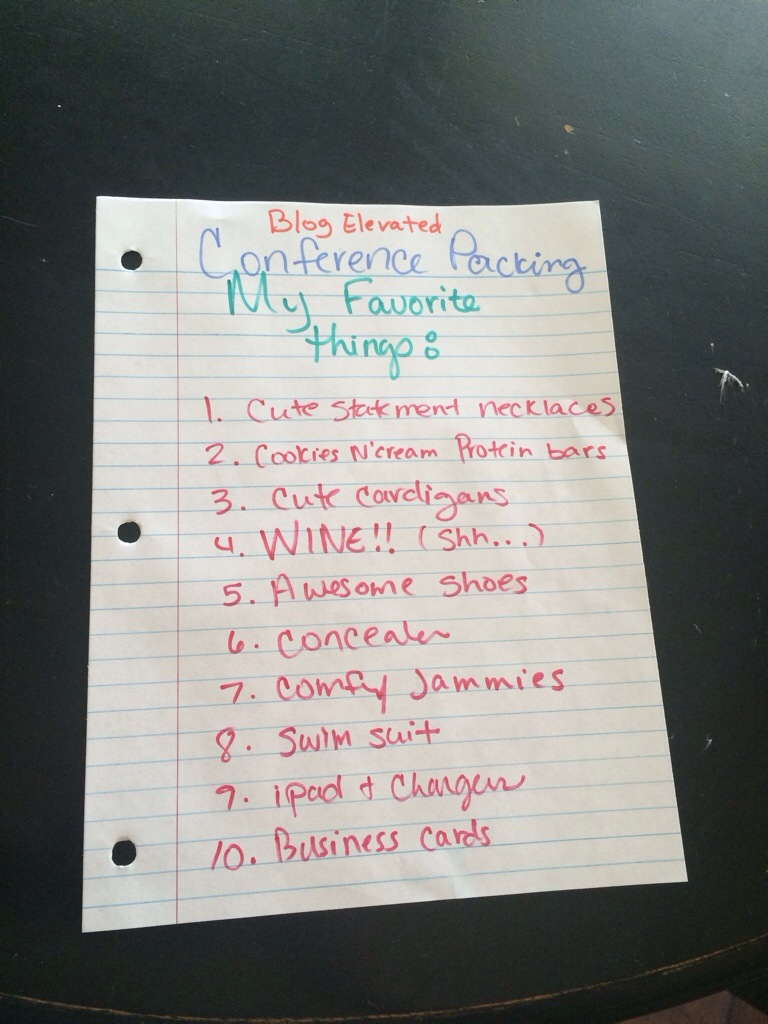 Blog Elevated
Conference Packing
My Favorite
things:
1. Cute statement necklaces
2. Cookies N'cream Protein bars
3. Cute cardigans
4. WINE!! (Shh...)
5. Awesome shoes
6. Concealer
7. Comfy Jammies
8. Swim suit
9. ipad + Charger
10. Business cards